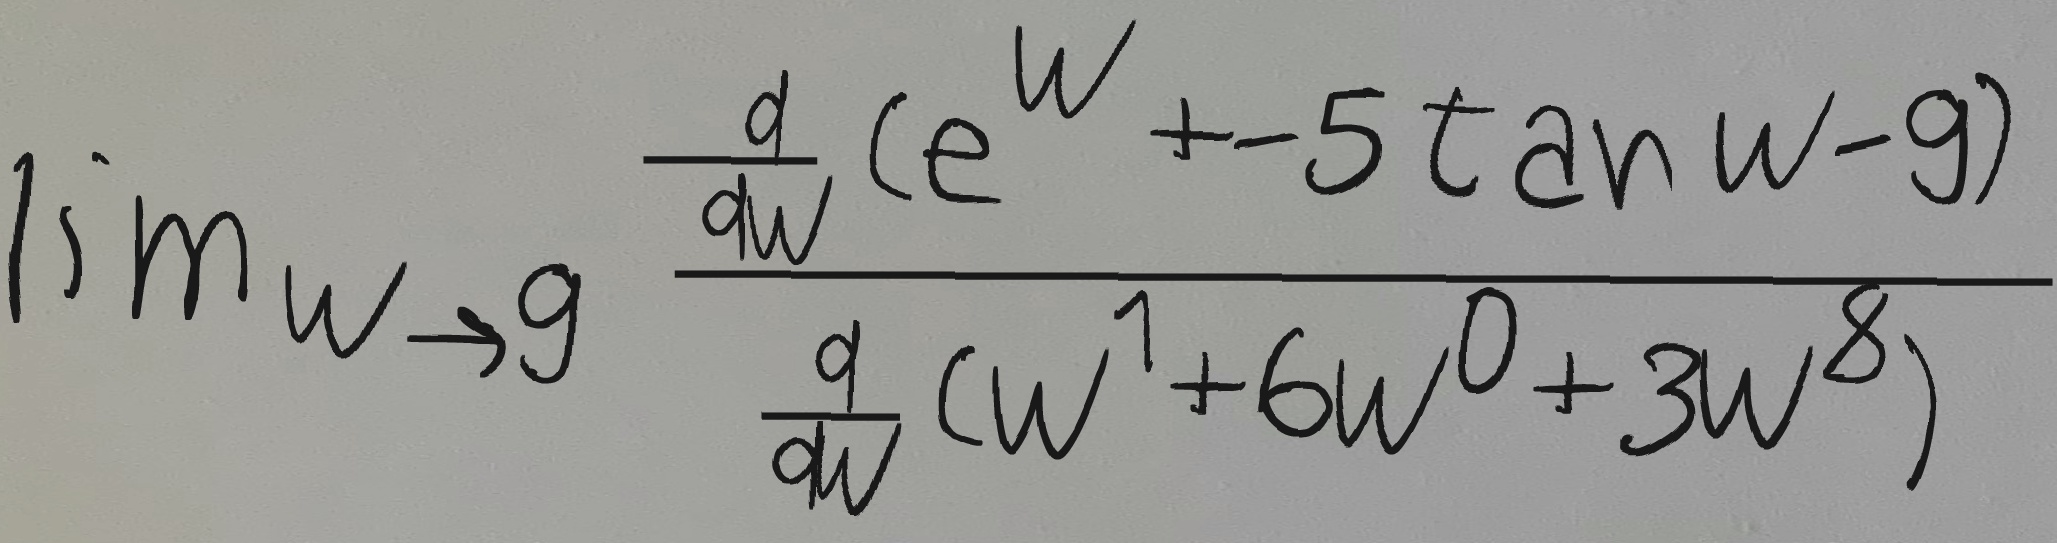 \lim_{w \to 9} \frac{\frac{d}{dw}(e^w + -5\tan w - 9)}{\frac{d}{dw}(w^1 + 6w^0 + 3w^8)}